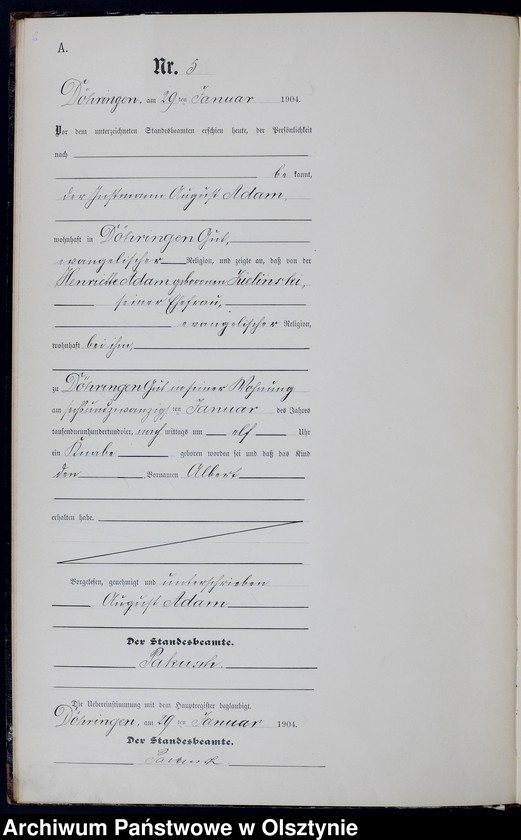 A.
Nr. 5
Döhringen, am 29 ten Januar 1904.
Vor dem unterzeichneten Standesbeamten erschien heute, der Persönlichkeit
nach
be kannt,
der Instmann August Adam,
wohnhaft in Döhringen Gut,
evangelischer Religion, und zeigte an, daß von der
Henriette Adam geborenen Zielinski,
seiner Ehefrau,
evangelischer Religion,
wohnhaft bei ihm,
zu Döhringen Gut in seiner Wohnung
am sechsundzwanzig ten Januar des Jahres
tausendneunhundertundvier, nach mittags um elf Uhr
ein Knabe geboren worden sei und daß das Kind
den Vornamen Albert
erhalten habe.
Vorgelesen, genehmigt und unterschrieben
August Adam
Der Standesbeamte.
Die Uebereinstimmung mit dem Hauptregister beglaubigt.
Döhringen, am 29 ten Januar 1904.
Der Standesbeamte.
Archiwum Państwowe w Olsztynie